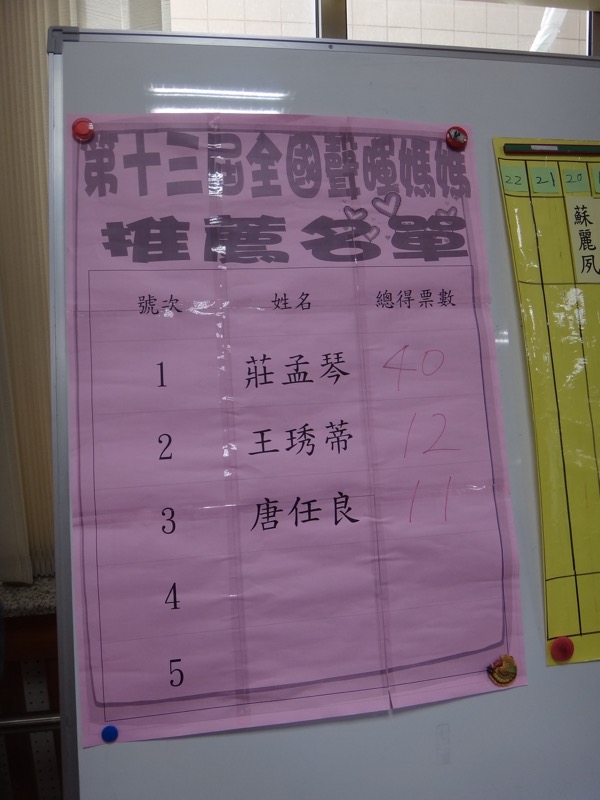 第十三屆全國聲暉媽媽
推薦名單
號次 姓名 總得票數
1 莊孟琴 40
2 王琇蒂 12
3 唐任良 11
4
5
22 21 20
蘇麗夙